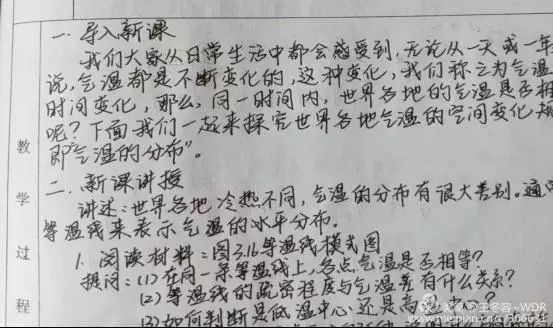 一. 导入新课
我们大家从日常生活中都会感受到,无论从一天或一年
说,气温都是不断变化的,这种变化,我们称之为气温
时间变化,那么,同一时间内,世界各地的气温是否相
呢?下面我们一起来探究世界各地气温的空间变化规
即“气温的分布”。
二. 新课讲授
讲述:世界各地冷热不同,气温的分布有很大差别。通常
等温线来表示气温的水平分布.
1. 阅读材料:图3.16等温线模式图
提问:(1)在同一条等温线上,各点气温是否相等?
(2)等温线的疏密程度与气温差有什么关系?
(3)如何判断是低温中心还是高
教
学
过
程
王冬容-WDR